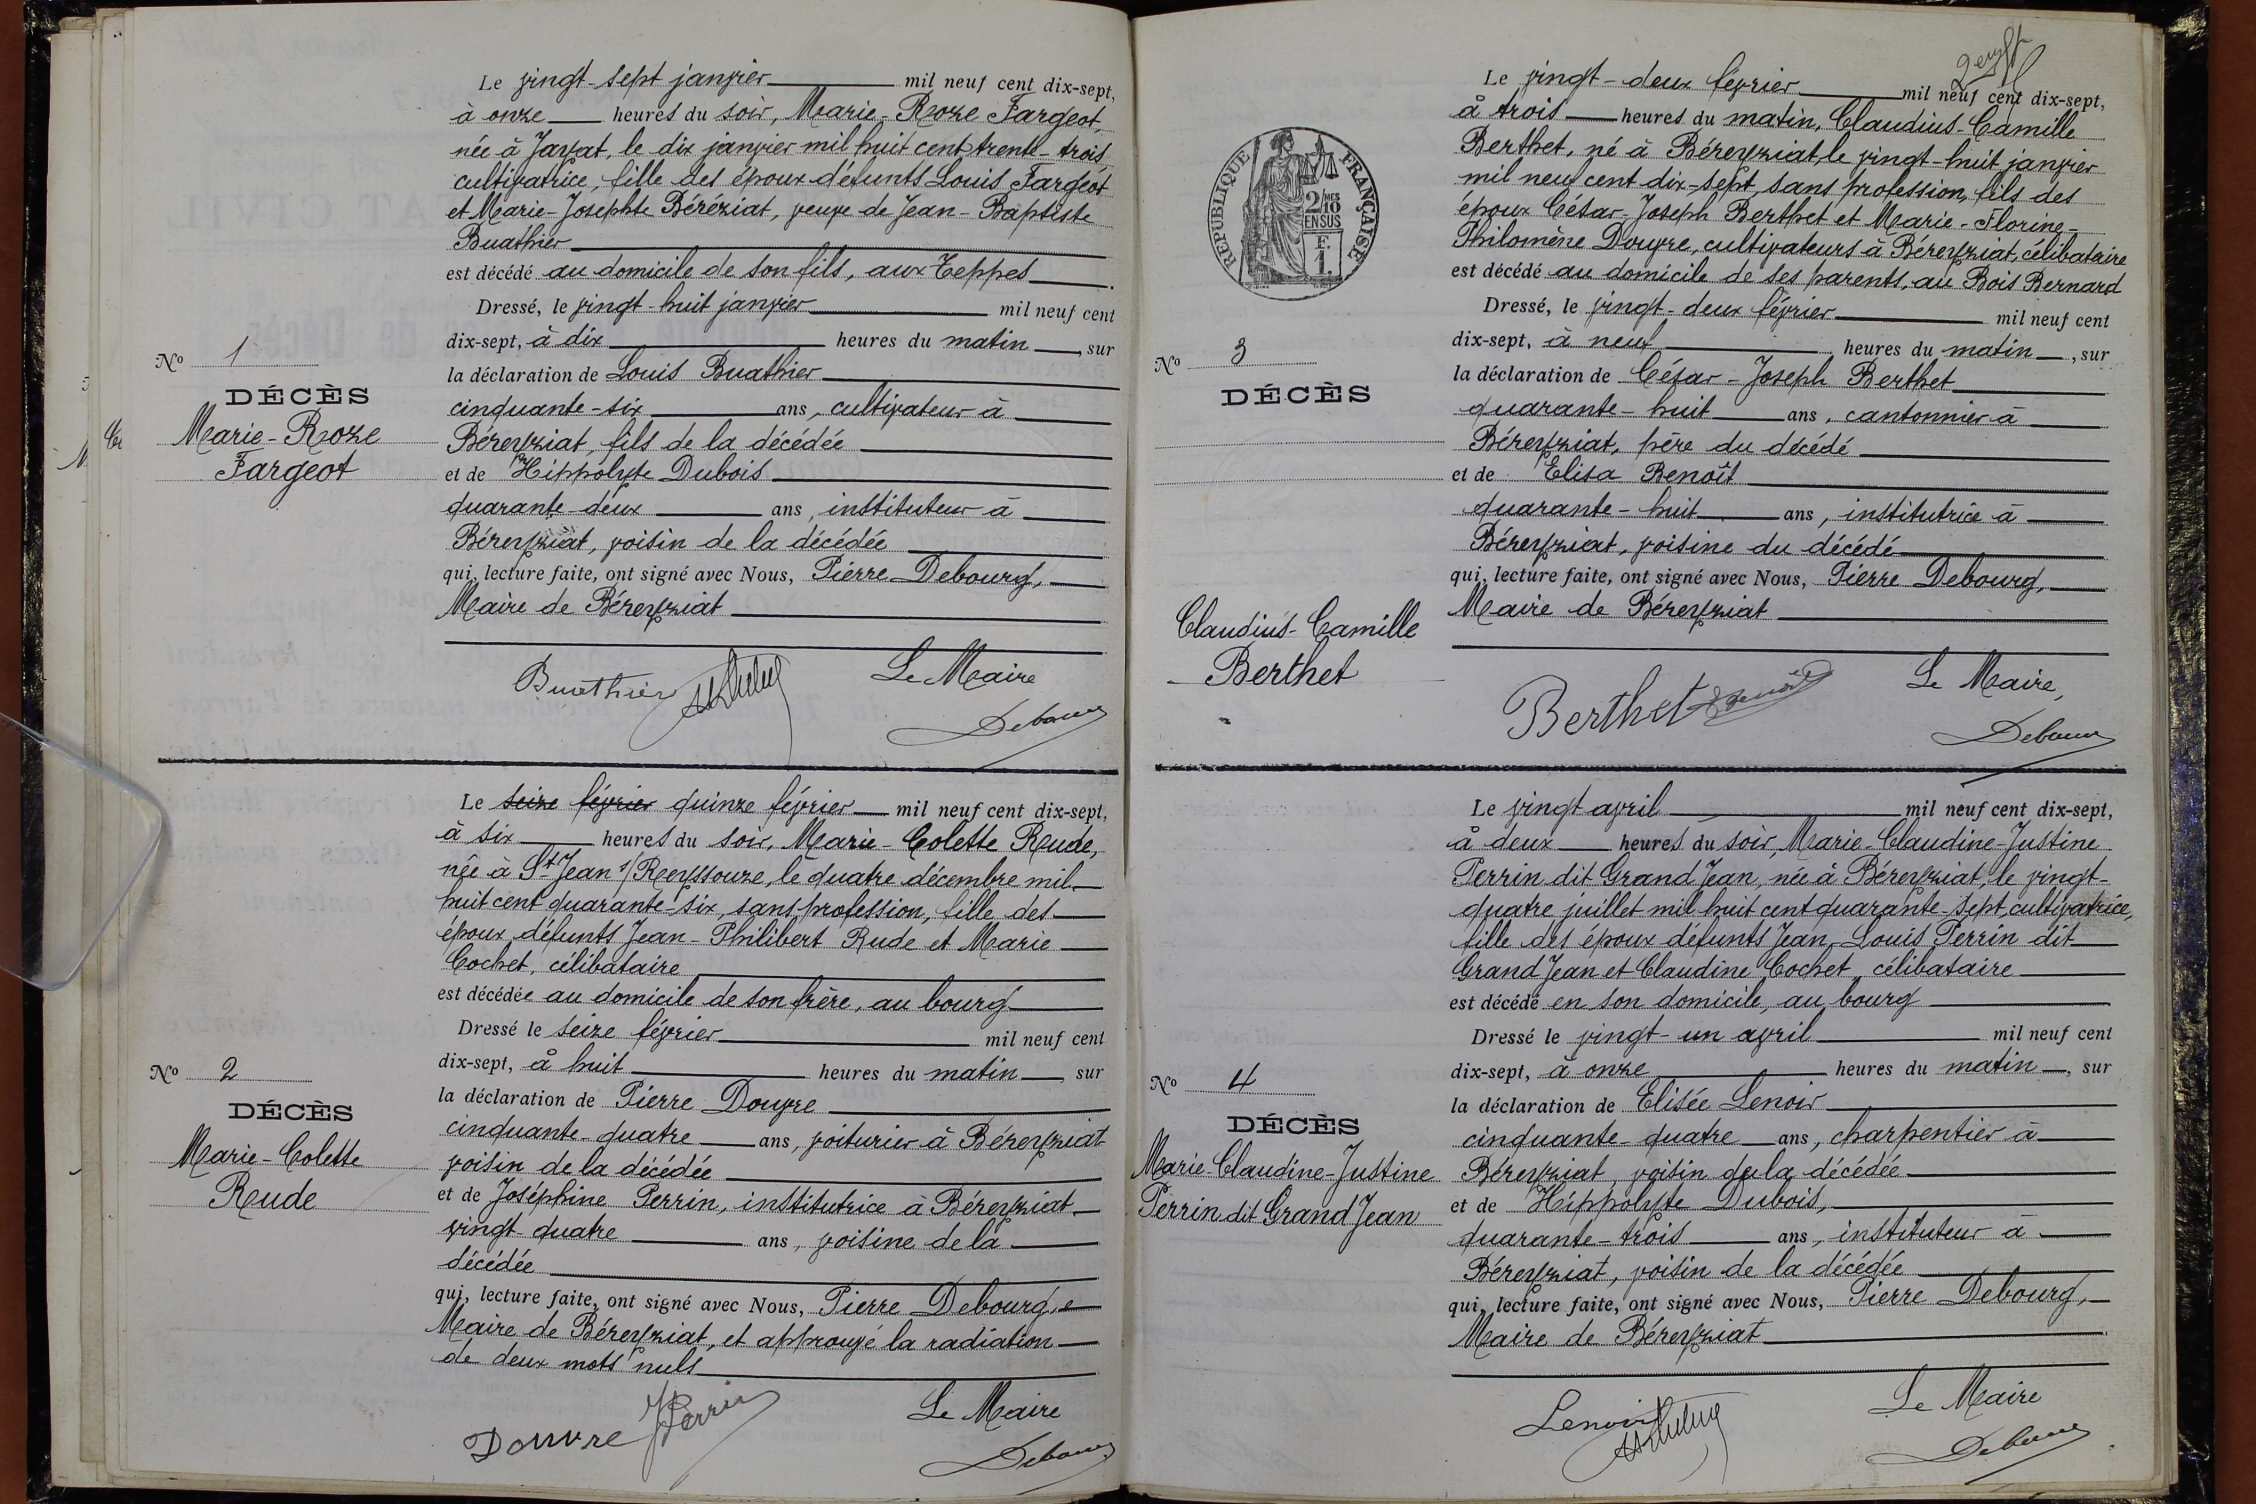 Le vingt-sept janvier mil neuf cent dix-sept,
à onze heures du soir, Marie-Roze Fargeot,
née à Jayat, le dix janvier mil huit cent trente-trois
cultivatrice, fille des époux défunts Louis Fargeot
et Marie-Josephte Béréziat, veuve de Jean-Baptiste
Buathier
est décédé au domicile de son fils, aux Teppes.
Dressé, le vingt-huit janvier mil neuf cent
dix-sept, à dix heures du matin, sur
la déclaration de Louis Buathier
cinquante-six ans, cultivateur à
Béreyziat, fils de la décédée
et de Hippolyte Dubois
quarante-deux ans, instituteur à
Béreyziat, voisin de la décédée
qui, lecture faite, ont signé avec Nous, Pierre Debourg,
Maire de Béreyziat
Nº 1
DÉCÈS
Marie-Roze
Fargeot
Buathier
Le Maire
Debourg
Le seize février quinze février mil neuf cent dix-sept,
à six heures du soir, Marie-Colette Rude,
née à St Jean s/Reyssouze, le quatre décembre mil
huit cent quarante-six, sans profession, fille des
époux défunts Jean-Philibert Rude et Marie
Cochet, célibataire
est décédée au domicile de son frère, au bourg
Dressé le seize février mil neuf cent
dix-sept, à huit heures du matin, sur
la déclaration de Pierre Douvre
cinquante-quatre ans, voiturier à Béreyziat
voisin de la décédée
et de Joséphine Perrin, institutrice à Béreyziat
vingt-quatre ans, voisine de la
décédée
qui, lecture faite, ont signé avec Nous, Pierre Debourg,
Maire de Béreyziat, et approuvé la radiation
de deux mots nuls
Nº 2
DÉCÈS
Marie-Colette
Rude
Douvre JPerrin
Le Maire
Debourg
Le vingt-deux février mil neuf cent dix-sept,
à trois heures du matin, Claudius-Camille
Berthet, né à Béreyziat, le vingt-huit janvier
mil neuf cent dix-sept, sans profession, fils des
époux César-Joseph Berthet et Marie-Florine-
Philomène Douvre, cultivateurs à Béreyziat, célibataire
est décédé au domicile de ses parents, au Bois Bernard
Dressé, le vingt-deux février mil neuf cent
dix-sept, à neuf heures du matin, sur
la déclaration de César-Joseph Berthet
quarante-huit ans, cantonnier à
Béreyziat, père du décédé
et de Elisa Benoît
quarante-huit ans, institutrice à
Béreyziat, voisine du décédé
qui, lecture faite, ont signé avec Nous, Pierre Debourg,
Maire de Béreyziat
REPUBLIQUE FRANÇAISE
2/10 MES
EN SUS
F.
1.
Nº 3
DÉCÈS
Claudius-Camille
Berthet
Berthet E Benoît
Le Maire,
Debourg
Le vingt avril mil neuf cent dix-sept,
à deux heures du soir, Marie-Claudine-Justine
Perrin dit Grand Jean, née à Béreyziat, le vingt-
quatre juillet mil huit cent quarante-sept, cultivatrice,
fille des époux défunts Jean-Louis Perrin dit
Grand Jean et Claudine Cochet, célibataire
est décédé en son domicile, au bourg
Dressé le vingt-un avril mil neuf cent
dix-sept, à onze heures du matin, sur
la déclaration de Elisée Lenoir
cinquante-quatre ans, charpentier à
Béreyziat, voisin de la décédée
et de Hippolyte Dubois,
quarante-trois ans, instituteur à
Béreyziat, voisin de la décédée
qui, lecture faite, ont signé avec Nous, Pierre Debourg,
Maire de Béreyziat
Nº 4
DÉCÈS
Marie-Claudine-Justine
Perrin dit Grand Jean
Lenoir
Le Maire
Debourg